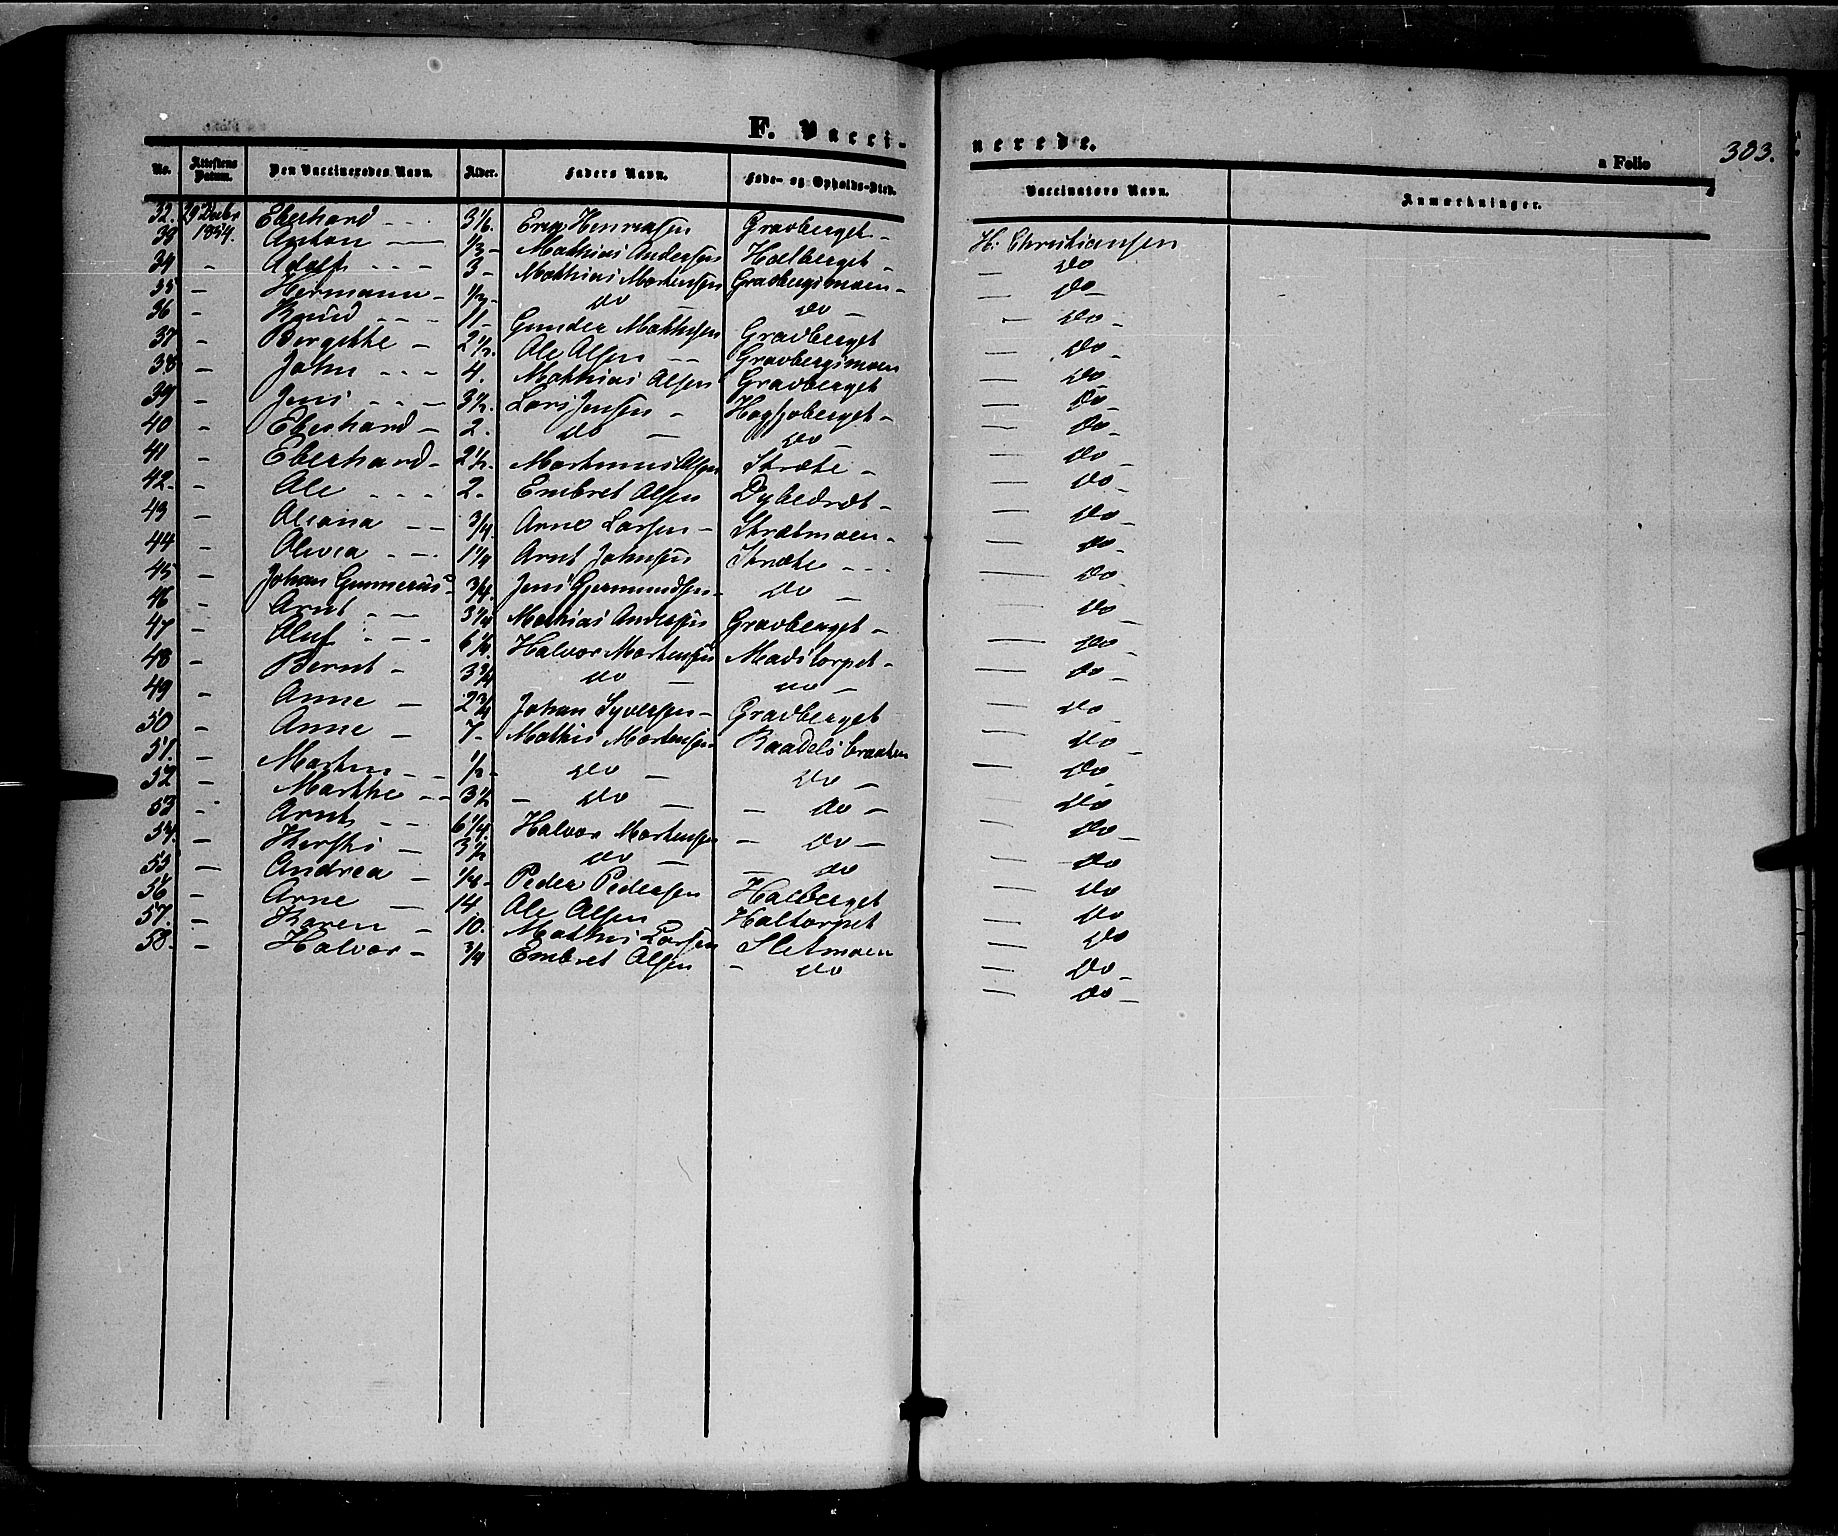 F. Vacci-
nerede.
a Folio 303.
No. | Attestens Datum. | Den Vaccineredes Navn. | Alder. | Faders Navn. | Føde- og Opholds-Sted. | Vaccinators Navn. | Anmærkninger.
32. | 29 Decbr 1854. | Eberhard | 3 1/6. | Henriksen | Gravberget - | H: Christiansen
33 | Anton | 1/3 - | Mathias Andersen | Halberget - | - do
34 | - | Adolf | 3 - | Mathias Mortensen | Gravbergsmoen - | - do -
35 | - | Hermann - | 1/2 - | do - | do - | - do -
36 | - | Knud | 11 - | Gunder Mathisen | Gravberget | - do -
37 | - | Bergithe - | 2 1/2. | Ole Olsen | Gravbergsmoen | - do -
38 | - | John | 4. | Mathias Olsen | Gravberget | - do -
39 | - | Jens | 3 1/2. | Lars Jensen - | Hogsjøberget - | - do -
40 | - | Eberhard - | 2. | do - | do - | - do -
41 | - | Eberhard - | 2 1/2. | Martinus Olsen | Stræte - | - do -
42. | - | Ole | 2. | Embret Olsen | | - do -
43 | - | Oleana | 3/4. | Arne Larsen - | Strætmoen - | - do -
44 | - | Olivia | 1 1/4 | Arnt Johnsen | Stræte | - do -
45 | - | Johan Gunnerius | 3/4. | Jens Gjermundsen - | do - | - do -
46 | - | Arnt | 3 1/4 | Mathias Andersen | Gravberget - | - do -
47 | - | Oluf | 6 1/4. | Halvor Mortensen | Madstorpet - | - do -
48 | - | Bernt - | 3 3/4 | do - | do - | - do -
49 | - | Anne - | 2 3/4 | Johan Syversen - | Gravberget | - do -
50 | - | Anne - | 7 - | Mathis Mortensen - | Baadelsbraaten | - do -
51. | - | Marten | 1/2 - | do - | do - | - do -
52 | - | Marthe | 3 1/2 | - do - | - do - | - do
53 | - | Arnt | 6 1/4. | Halvor Mortensen | - do - | - do -
54. | - | Kersti - | 3 1/2 | do - | - do | - do
55 | - | Andrea - | 1/4 - | Peder Pedersen | Halberget | - do
56 | - | Arne - | 14 | Ole Olsen | Haltorpet | - do
57. | - | Karen - | 10. | Mathis Larsen | Sletmoen | - do
58. | - | Halvor - | 3/4 | Embret Olsen | - do | - do -
- do -